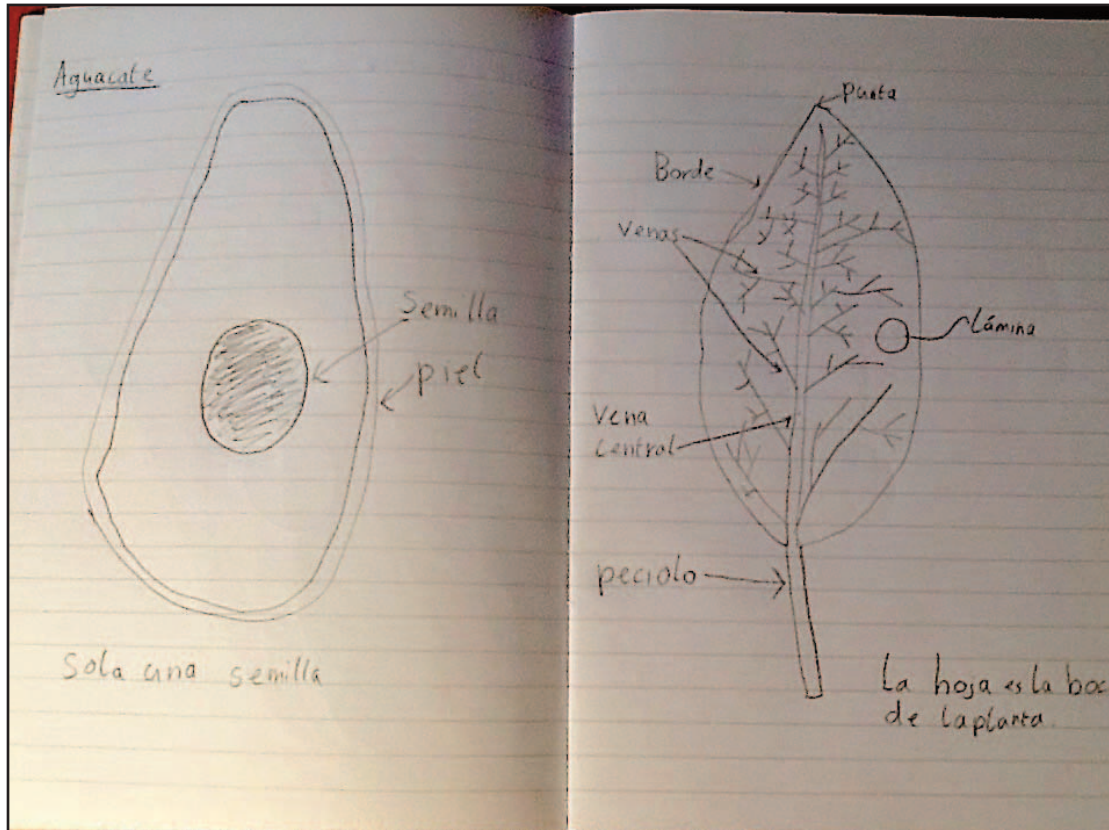 Aguacate
Semilla
piel
Sola una semilla
Punta
Borde
Venas
Lámina
Vena
Central
peciolo
La hoja es la boc
de la planta.